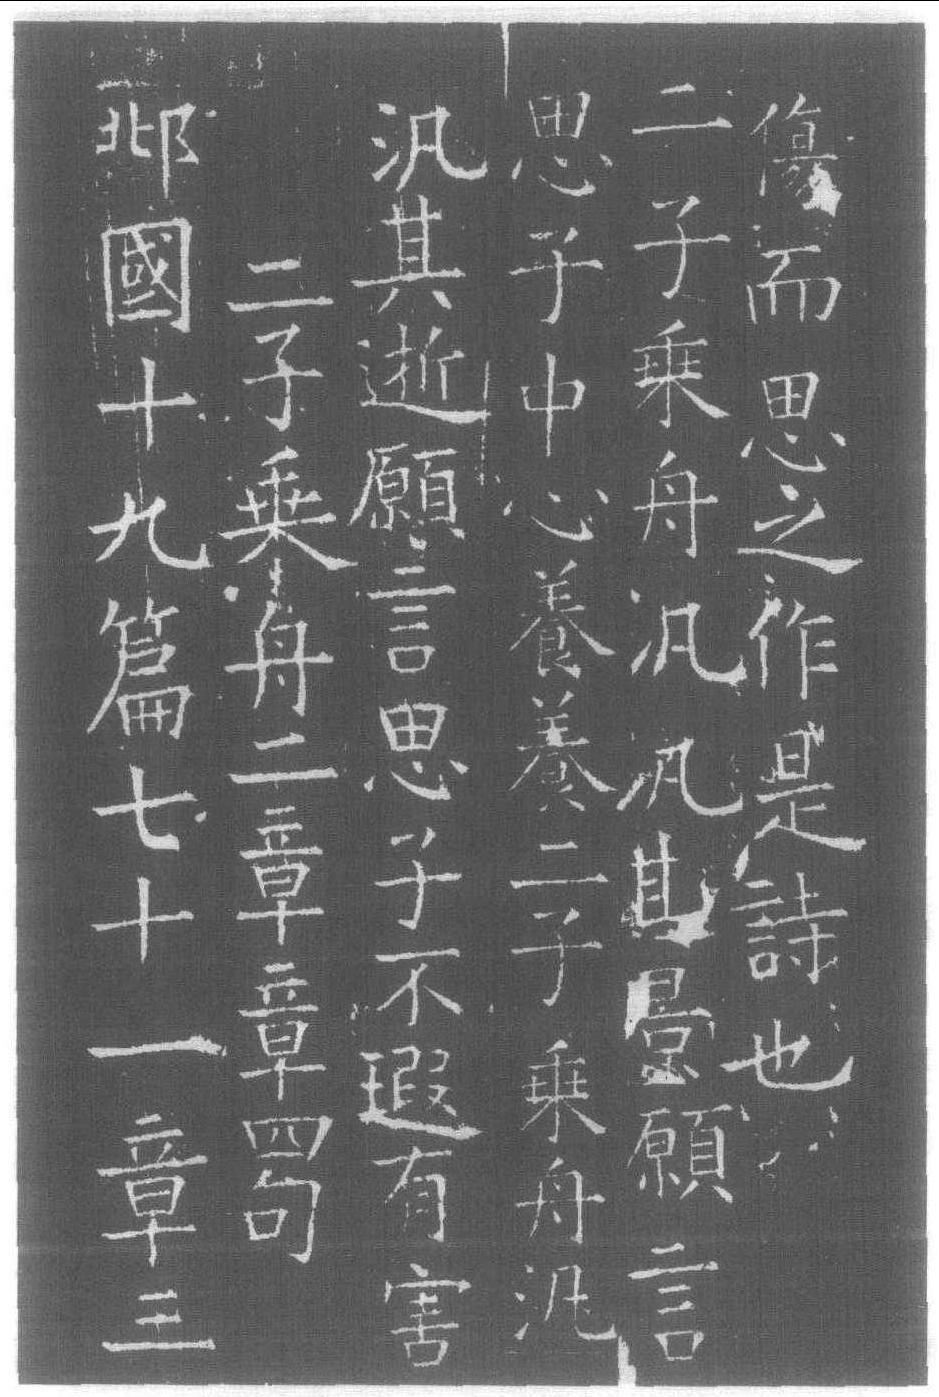 傷而思之作是詩也
二子乗舟汎汎其景願言
思子中心養養二子乗舟汎
汎其逝願言思子不瑕有害
二子乗舟二章章四句
邶國十九篇七十一章三